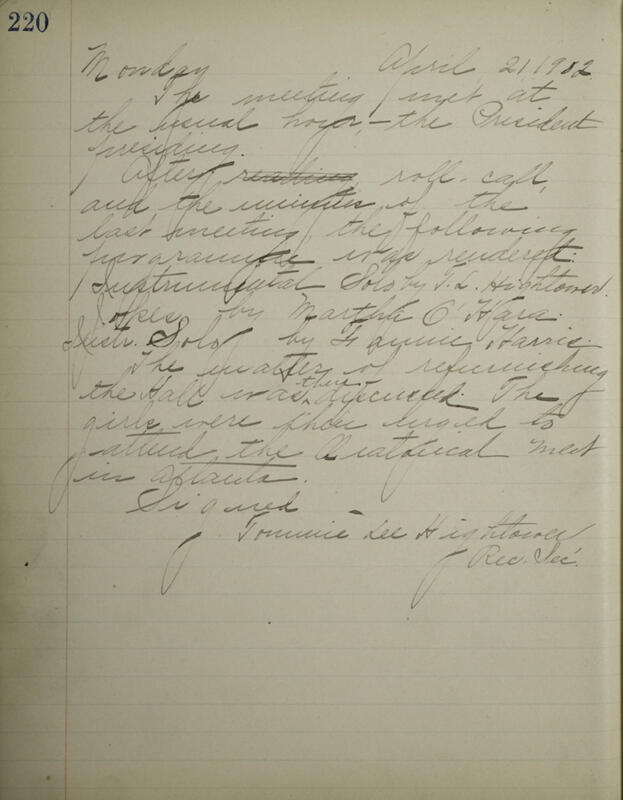 220
Monday April 21 1902
The meeting met at
the usual hour, - the President
presiding.
After reading roll-call,
and the minutes of the
last meeting, the following
programme was rendered:
Instrumental Solo by T. L. Hightower.
Jokes by Martha O'Hara.
Instr. Solo by Fannie Harris.
The matter of refurnishing
the Hall was then discussed. The
girls were then urged to
attend the Oratorical Meet
in Atlanta.
Signed
Tommie Lee Hightower
Rec. Sec.